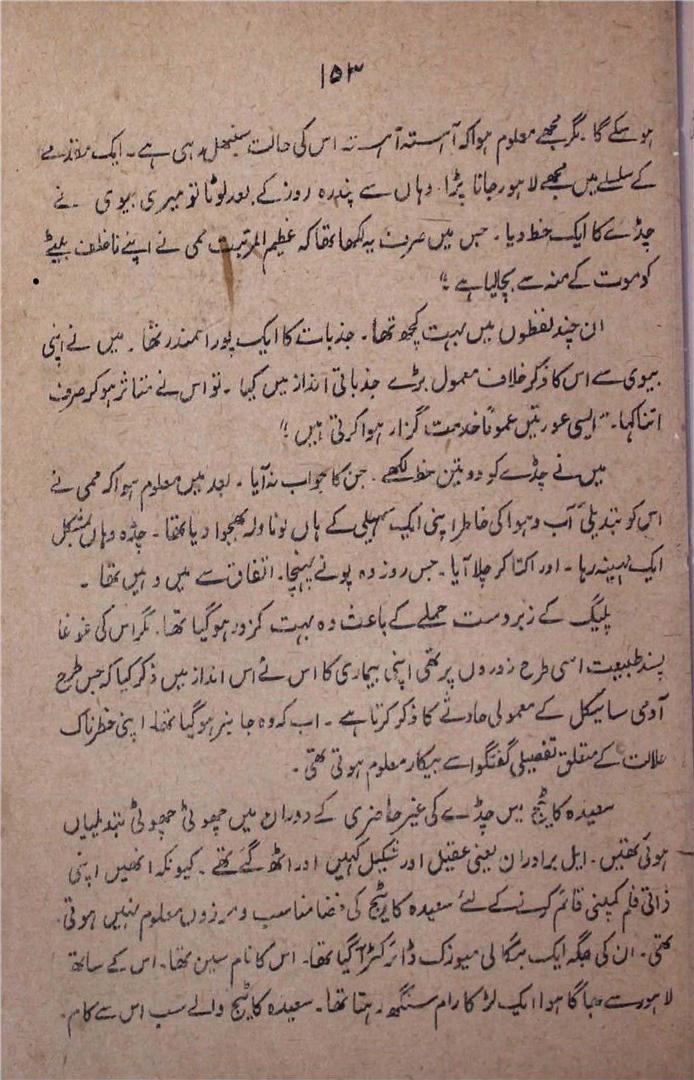 ۱۵۳
ہو سکے گا۔ مگر مجھے معلوم ہوا کہ آہستہ آہستہ اس کی حالت سنبھل رہی ہے۔ ایک مقدمے
کے سلسلے میں مجھے لاہور جانا پڑا۔ وہاں سے پندرہ روز کے بعد لوٹا تو میری بیوی نے
چڈے کا ایک خط دیا۔ جس میں صرف یہ لکھا تھا کہ عظیم المرتبت ممی نے اپنے ناخلف بیٹے
کو موت کے منہ سے بچا لیا ہے"
ان چند لفظوں میں بہت کچھ تھا۔ جذبات کا ایک پورا سمندر تھا۔ میں نے اپنی
بیوی سے اس کا ذکر خلاف معمول بڑے جذباتی انداز میں کیا۔ تو اس نے متاثر ہو کر صرف
اتنا کہا۔ "ایسی عورتیں عموماً خدمت گزار ہوا کرتی ہیں"
میں نے چڈے کو دو تین خط لکھے۔ جن کا جواب نہ آیا۔ بعد میں معلوم ہوا کہ ممی نے
اس کو تبدیلیٔ آب و ہوا کی خاطر اپنی ایک سہیلی کے ہاں لوناولہ بھجوا دیا تھا۔ چڈہ وہاں بمشکل
ایک مہینہ رہا۔ اور اکتا کر چلا آیا۔ جس روز وہ پونے پہنچا۔ اتفاق سے میں وہیں تھا۔
پلیگ کے زبردست حملے کے باعث وہ بہت کمزور ہو گیا تھا۔ مگر اس کی غوغا
پسند طبیعت اسی طرح زوروں پر تھی اپنی بیماری کا اس نے اس انداز میں ذکر کیا کہ جس طرح
آدمی سائیکل کے معمولی حادثے کا ذکر کرتا ہے۔ اب کہ وہ جانبر ہو گیا تھا۔ اپنی خطرناک
علالت کے متعلق تفصیلی گفتگو اسے بیکار معلوم ہوتی تھی۔
سعیدہ کاٹیج میں چڈے کی غیر حاضری کے دوران میں چھوٹی چھوٹی تبدیلیاں
ہوئی تھیں۔ ایل برادران یعنی عقیل اور شکیل کہیں اور اٹھ گئے تھے۔ کیونکہ انھیں اپنی
ذاتی فلم کمپنی قائم کرنے کے لئے سعیدہ کاٹیج کی فضا مناسب و موزوں معلوم نہیں ہوتی
تھی۔ ان کی جگہ ایک بنگالی میوزک ڈائرکٹر آ گیا تھا۔ اس کا نام سین تھا۔ اس کے ساتھ
لاہور سے بھاگا ہوا ایک لڑکا رام سنگھ رہتا تھا۔ سعیدہ کاٹیج والے سب اس سے کام